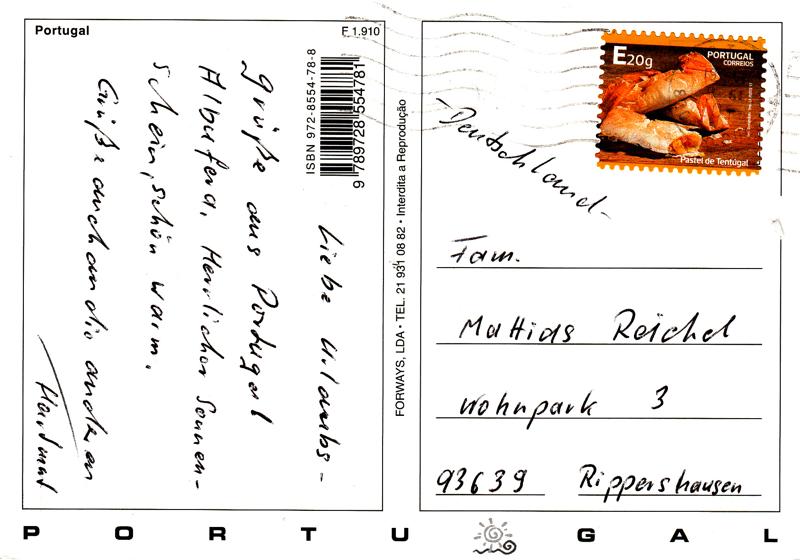 Portugal
F 1.910
ISBN 972-8554-78-8
9 789728 554781
Liebe Urlaubs-
grüße aus Portugal
Albufera. Herrlicher Sonnen-
schein, schön warm.
Grüße auch an die anderen
Hartmut
FORWAYS, LDA • TEL. 21 931 08 82 • Interdita a Reprodução
E20g
PORTUGAL
CORREIOS
Pastel de Tentúgal
-Deutschland-
Fam.
Mattias Reichel
Wohnpark 3
93639 Rippershausen
PORTUGAL